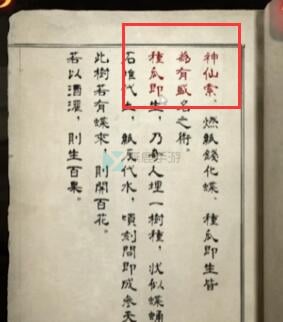 神仙索、燃紙錢化蝶、種瓜即生皆
為有盛名之術。
種瓜即生，乃尋人埋一樹種，狀似蝶蛹
石堆代土，紙灰代水，頃刻間即成參天
此樹若有蝶來，則開百花。
若以酒灌，則生百果。